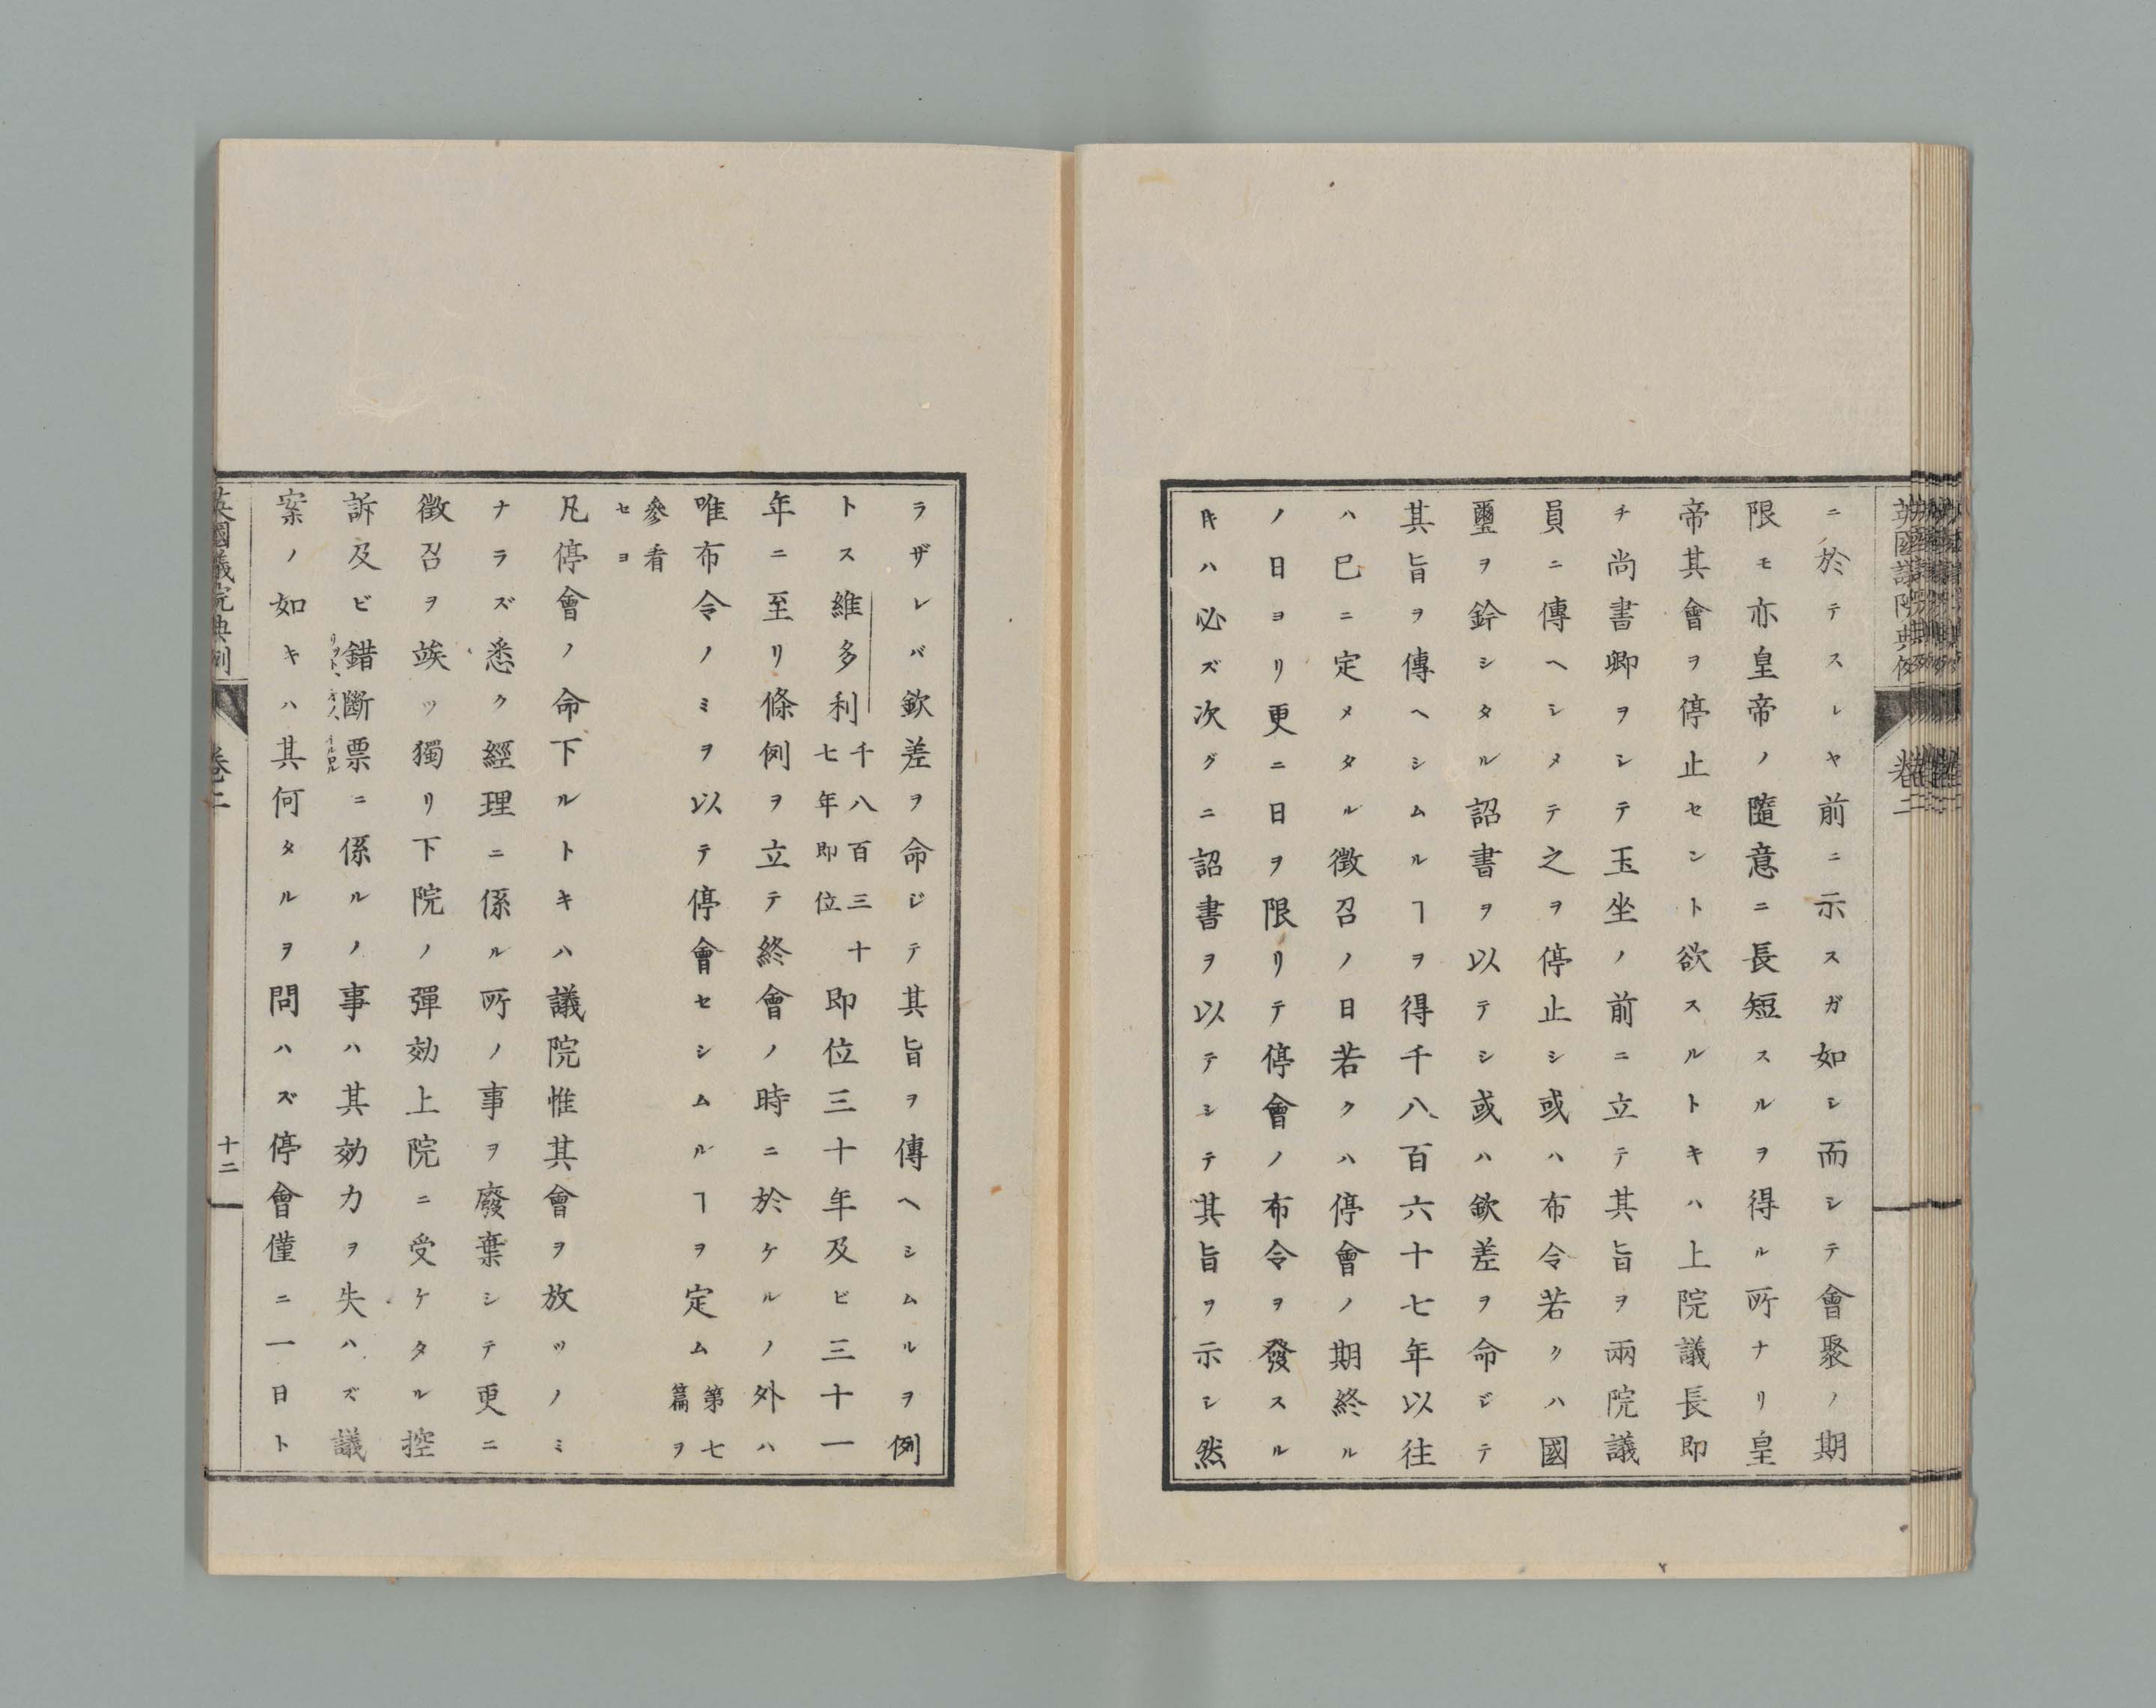 英國議院典例
卷二
ニ於テスレヤ前ニ示スガ如シ而シテ會聚ノ期
限モ亦皇帝ノ隨意ニ長短スルヲ得ル所ナリ皇
帝其會ヲ停止セント欲スルトキハ上院議長即
チ尚書卿ヲシテ玉坐ノ前ニ立テ其旨ヲ兩院議
員ニ傳ヘシメテ之ヲ停止シ或ハ布令若クハ國
璽ヲ鈐シタル詔書ヲ以テシ或ハ欽差ヲ命ジテ
其旨ヲ傳ヘシムルヿヲ得千八百六十七年以往
ハ已ニ定メタル徴召ノ日若クハ停會ノ期終ル
ノ日ヨリ更ニ日ヲ限リテ停會ノ布令ヲ發スル
𪜈ハ必ズ次グニ詔書ヲ以テシテ其旨ヲ示シ然
ラザレバ欽差ヲ命ジテ其旨ヲ傳ヘシムルヲ例
トス維多利千八百三十七年即位即位三十年及ビ三十一
年ニ至リ條例ヲ立テ終會ノ時ニ於ケルノ外ハ
唯布令ノミヲ以テ停會セシムルヿヲ定ム第七篇ヲ
參看セヨ
凡停會ノ命下ルトキハ議院惟其會ヲ放ツノミ
ナラズ悉ク經理ニ係ル所ノ事ヲ廢棄シテ更ニ
徴召ヲ竢ツ獨リ下院ノ彈劾上院ニ受ケタル控
訴及ビ錯斷票ニ係ルノ事ハ其効力ヲ失ハズ議
案ノ如キハ其何タルヲ問ハズ停會僅ニ一日ト
英國議院典例
卷二
十二